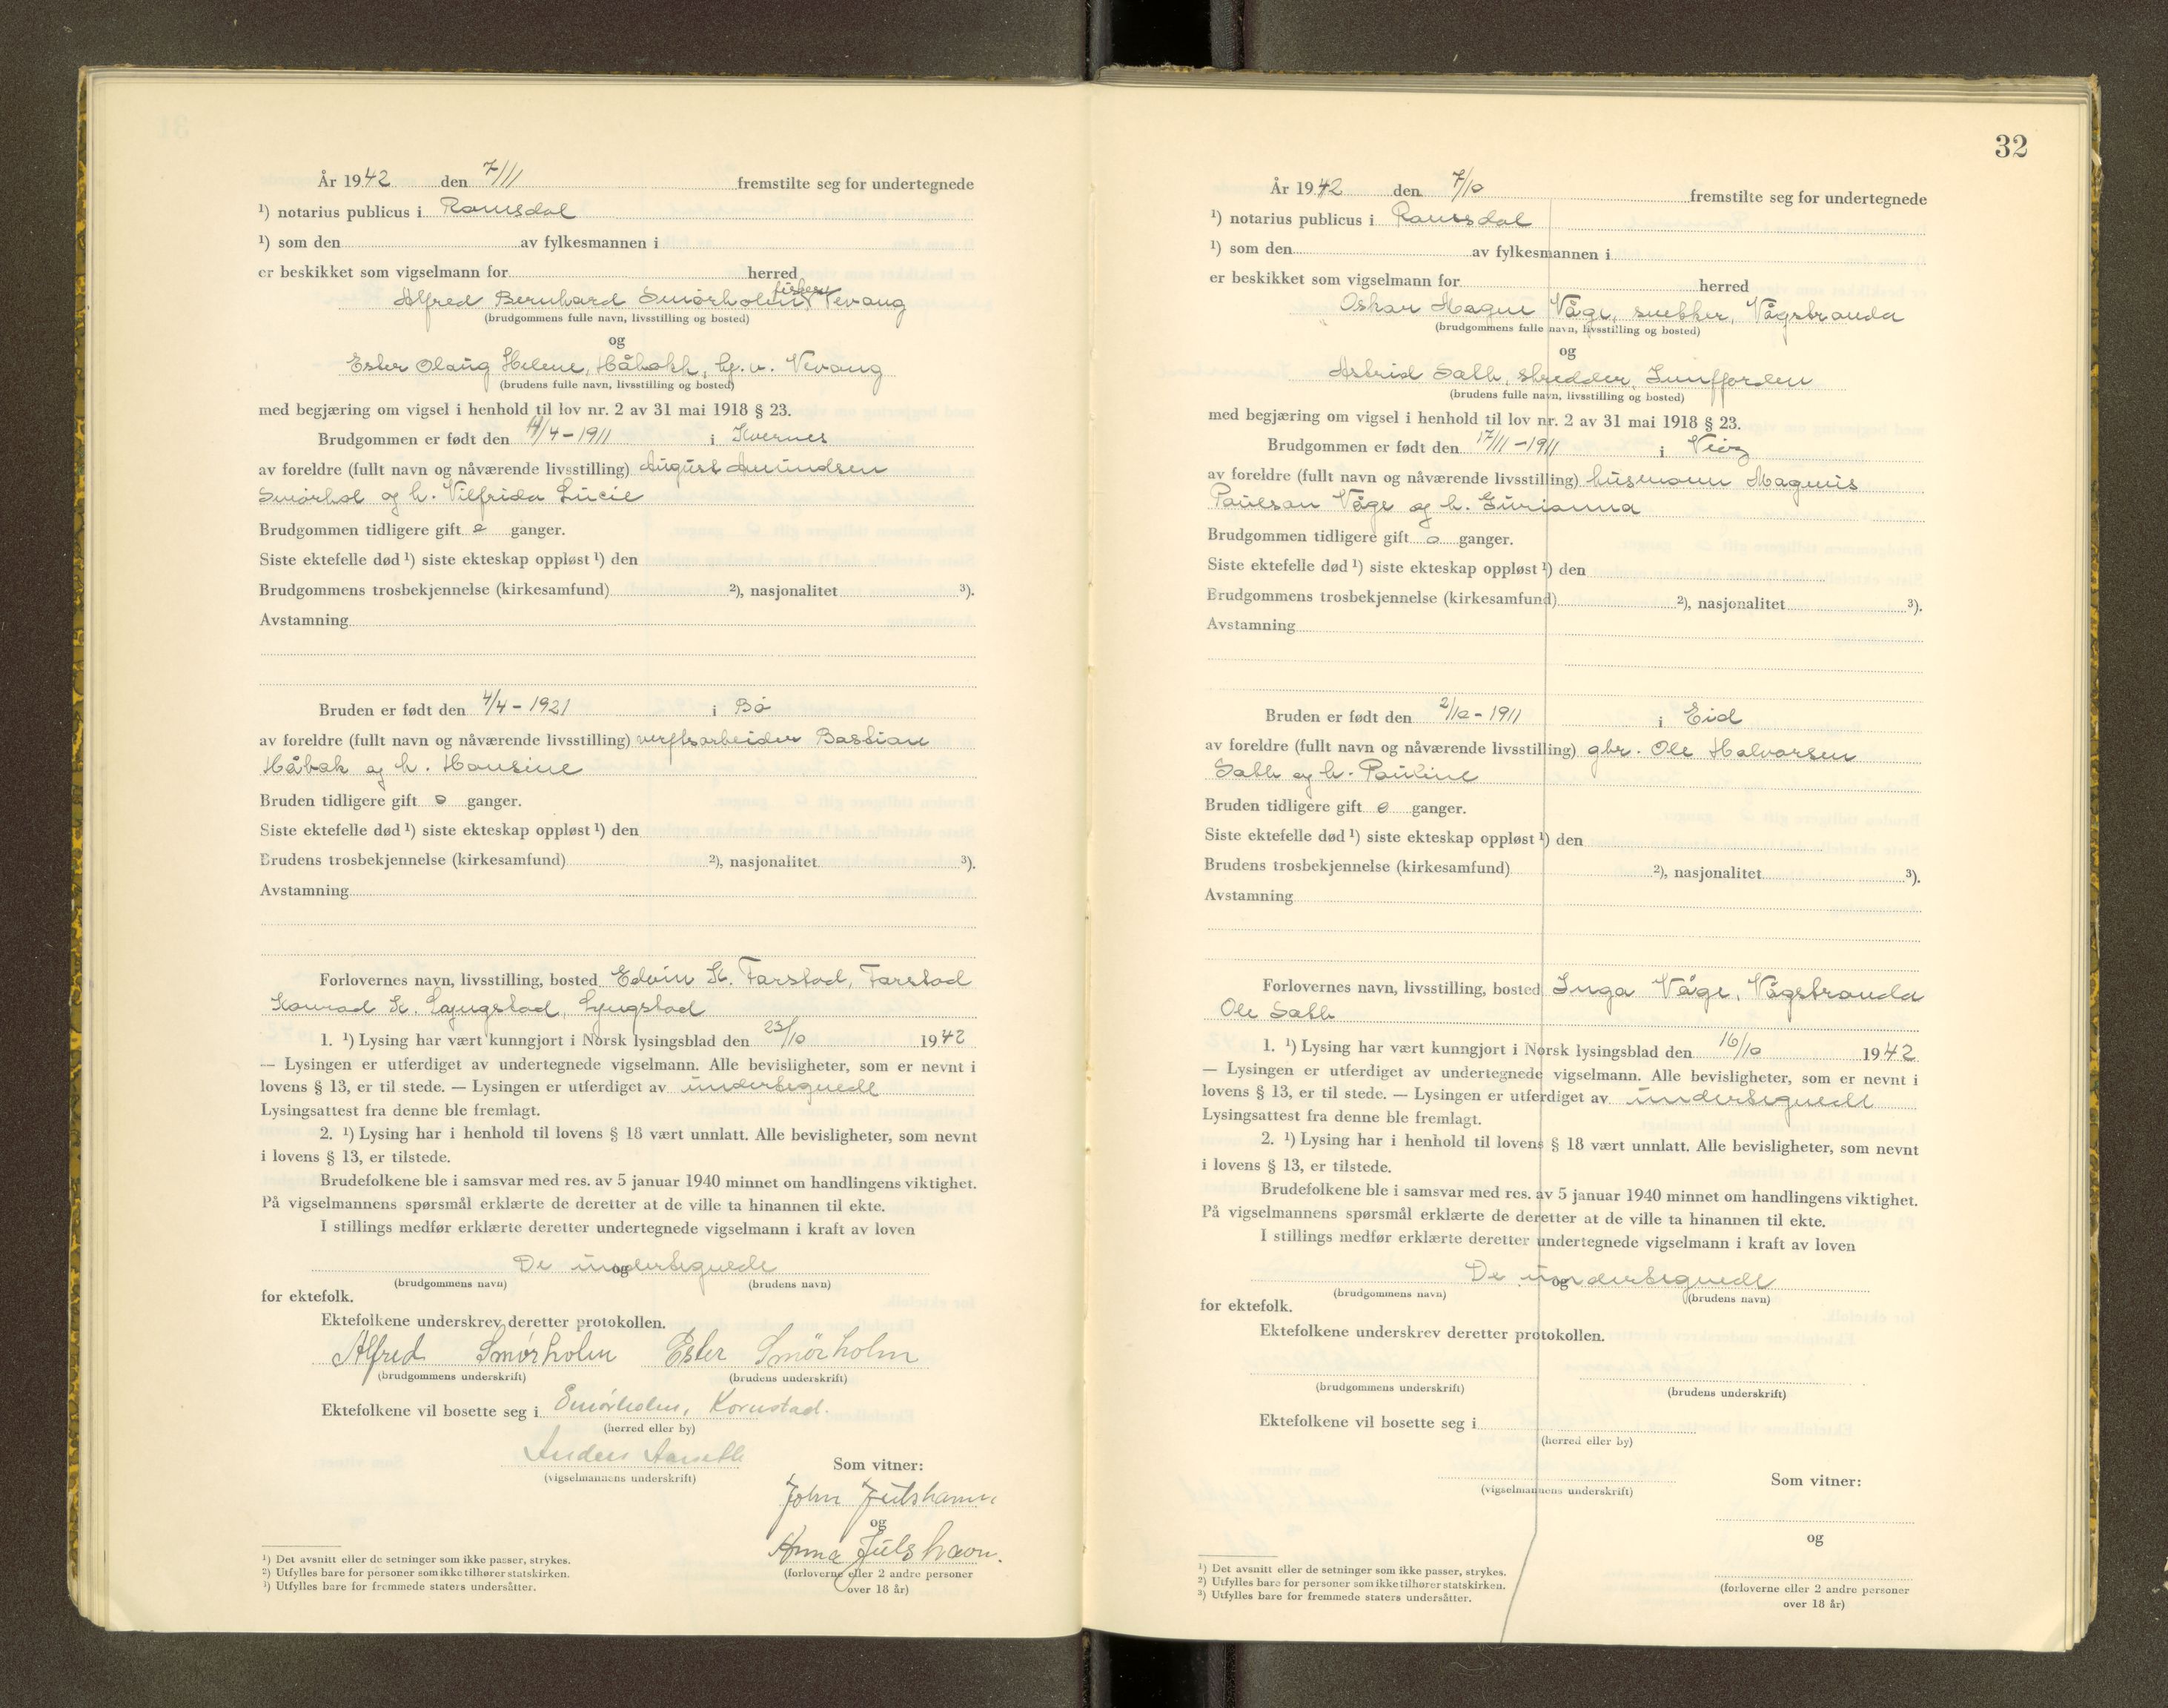 År 1942 den 7/11 fremstilte seg for undertegnede
¹) notarius publicus i Romsdal
¹) som den av fylkesmannen i
er beskikket som vigselmann for herred
fisker
Alfred Bernhard Smørholm, Vevang
(brudgommens fulle navn, livsstilling og bosted)
og
Ester Olaug Helene, Håbakk, hj. v. Vevang
(brudens fulle navn, livsstilling og bosted)
med begjæring om vigsel i henhold til lov nr. 2 av 31 mai 1918 § 23.
Brudgommen er født den 14/4-1911 i Kvernes
av foreldre (fullt navn og nåværende livsstilling) August Amundsen
Smørhol og h. Vilfrida Lucie
Brudgommen tidligere gift 0 ganger.
Siste ektefelle død ¹) siste ekteskap oppløst ¹) den
Brudgommens trosbekjennelse (kirkesamfund) ²), nasjonalitet ³).
Avstamning
Bruden er født den 4/4-1921 i Bø
av foreldre (fullt navn og nåværende livsstilling) verftsarbeider Bastian
Håbak og h. Hansine
Bruden tidligere gift 0 ganger.
Siste ektefelle død ¹) siste ekteskap oppløst ¹) den
Brudens trosbekjennelse (kirkesamfund) ²), nasjonalitet ³).
Avstamning
Forlovernes navn, livsstilling, bosted Edvin K. Farstad, Farstad
Konrad K. Lyngstad, Lyngstad
1. ¹) Lysing har vært kunngjort i Norsk lysingsblad den 23/10 1942
— Lysingen er utferdiget av undertegnede vigselmann. Alle bevisligheter, som er nevnt i
lovens § 13, er til stede. — Lysingen er utferdiget av undertegnede
Lysingsattest fra denne ble fremlagt.
2. ¹) Lysing har i henhold til lovens § 18 vært unnlatt. Alle bevisligheter, som nevnt
i lovens § 13, er tilstede.
Brudefolkene ble i samsvar med res. av 5 januar 1940 minnet om handlingens viktighet.
På vigselmannens spørsmål erklærte de deretter at de ville ta hinannen til ekte.
I stillings medfør erklærte deretter undertegnede vigselmann i kraft av loven
De undertegnede
og
(brudgommens navn) (brudens navn)
for ektefolk.
Ektefolkene underskrev deretter protokollen.
Alfred Smørholm Ester Smörholm
(brudgommens underskrift) (brudens underskrift)
Ektefolkene vil bosette seg i Smørholm, Kornstad.
(herred eller by)
Anders Aarseth
(vigselmannens underskrift)
Som vitner:
John Julshamn
og
Anna Julshavn.
(forloverne eller 2 andre personer
over 18 år)
¹) Det avsnitt eller de setninger som ikke passer, strykes.
²) Utfylles bare for personer som ikke tilhører statskirken.
³) Utfylles bare for fremmede staters undersåtter.
32
År 1942 den 7/10 fremstilte seg for undertegnede
¹) notarius publicus i Romsdal
¹) som den av fylkesmannen i
er beskikket som vigselmann for herred
Oskar Magne Våge, snekker, Vågstranda
(brudgommens fulle navn, livsstilling og bosted)
og
Astrid Sath, skredder, Innfjorden
(brudens fulle navn, livsstilling og bosted)
med begjæring om vigsel i henhold til lov nr. 2 av 31 mai 1918 § 23.
Brudgommen er født den 17/11-1911 i Veøy
av foreldre (fullt navn og nåværende livsstilling) husmann Magnus
Paulson Våge og h. Gurianna
Brudgommen tidligere gift 0 ganger.
Siste ektefelle død ¹) siste ekteskap oppløst ¹) den
Brudgommens trosbekjennelse (kirkesamfund) ²), nasjonalitet ³).
Avstamning
Bruden er født den 2/10-1911 i Eid
av foreldre (fullt navn og nåværende livsstilling) gbr. Ole Halvorsen
Sath og h. Pauline
Bruden tidligere gift 0 ganger.
Siste ektefelle død ¹) siste ekteskap oppløst ¹) den
Brudens trosbekjennelse (kirkesamfund) ²), nasjonalitet ³).
Avstamning
Forlovernes navn, livsstilling, bosted Inga Våge, Vågstranda
Ole Sath
1. ¹) Lysing har vært kunngjort i Norsk lysingsblad den 16/10 1942
— Lysingen er utferdiget av undertegnede vigselmann. Alle bevisligheter, som er nevnt i
lovens § 13, er til stede. — Lysingen er utferdiget av undertegnede
Lysingsattest fra denne ble fremlagt.
2. ¹) Lysing har i henhold til lovens § 18 vært unnlatt. Alle bevisligheter, som nevnt
i lovens § 13, er tilstede.
Brudefolkene ble i samsvar med res. av 5 januar 1940 minnet om handlingens viktighet.
På vigselmannens spørsmål erklærte de deretter at de ville ta hinannen til ekte.
I stillings medfør erklærte deretter undertegnede vigselmann i kraft av loven
De undertegnede
og
(brudgommens navn) (brudens navn)
for ektefolk.
Ektefolkene underskrev deretter protokollen.
(brudgommens underskrift) (brudens underskrift)
Ektefolkene vil bosette seg i
(herred eller by)
(vigselmannens underskrift)
Som vitner:
og
(forloverne eller 2 andre personer
over 18 år)
¹) Det avsnitt eller de setninger som ikke passer, strykes.
²) Utfylles bare for personer som ikke tilhører statskirken.
³) Utfylles bare for fremmede staters undersåtter.